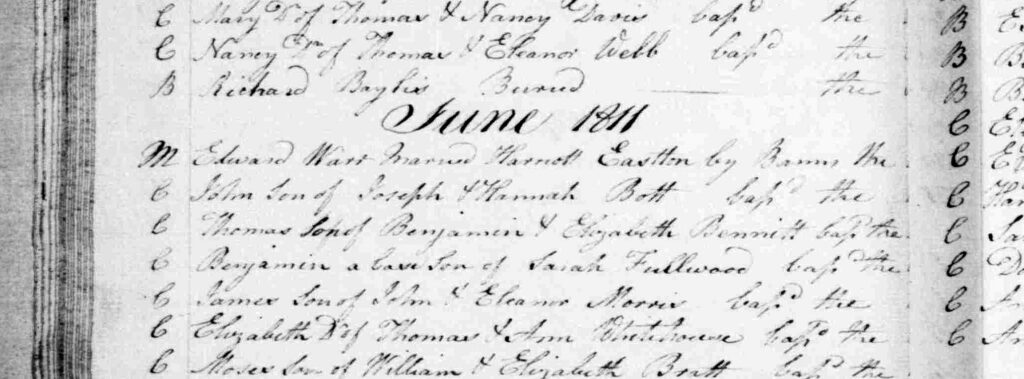 C Mary Dr of Thomas & Nancy Davis bapd the
C Nancy Dr of Thomas & Eleanor Webb bapd the
B Richard Baylis Buried the
June 1811
M Edward Warr Married Harriott Eastton by Banns the
C John Son of Joseph & Hannah Bott bapd the
C Thomas Son of Benjamin & Elizabeth Bennitt bapd the
C Benjamin a base Son of Sarah Fullwood bapd the
C James Son of John & Eleanor Morris bapd the
C Elizabeth Dr of Thomas & Ann Whitehouse bapd the
C Moses Son of William & Elizabeth Bratt bapd the
B
B
B
C
C
C
C
C
C
C